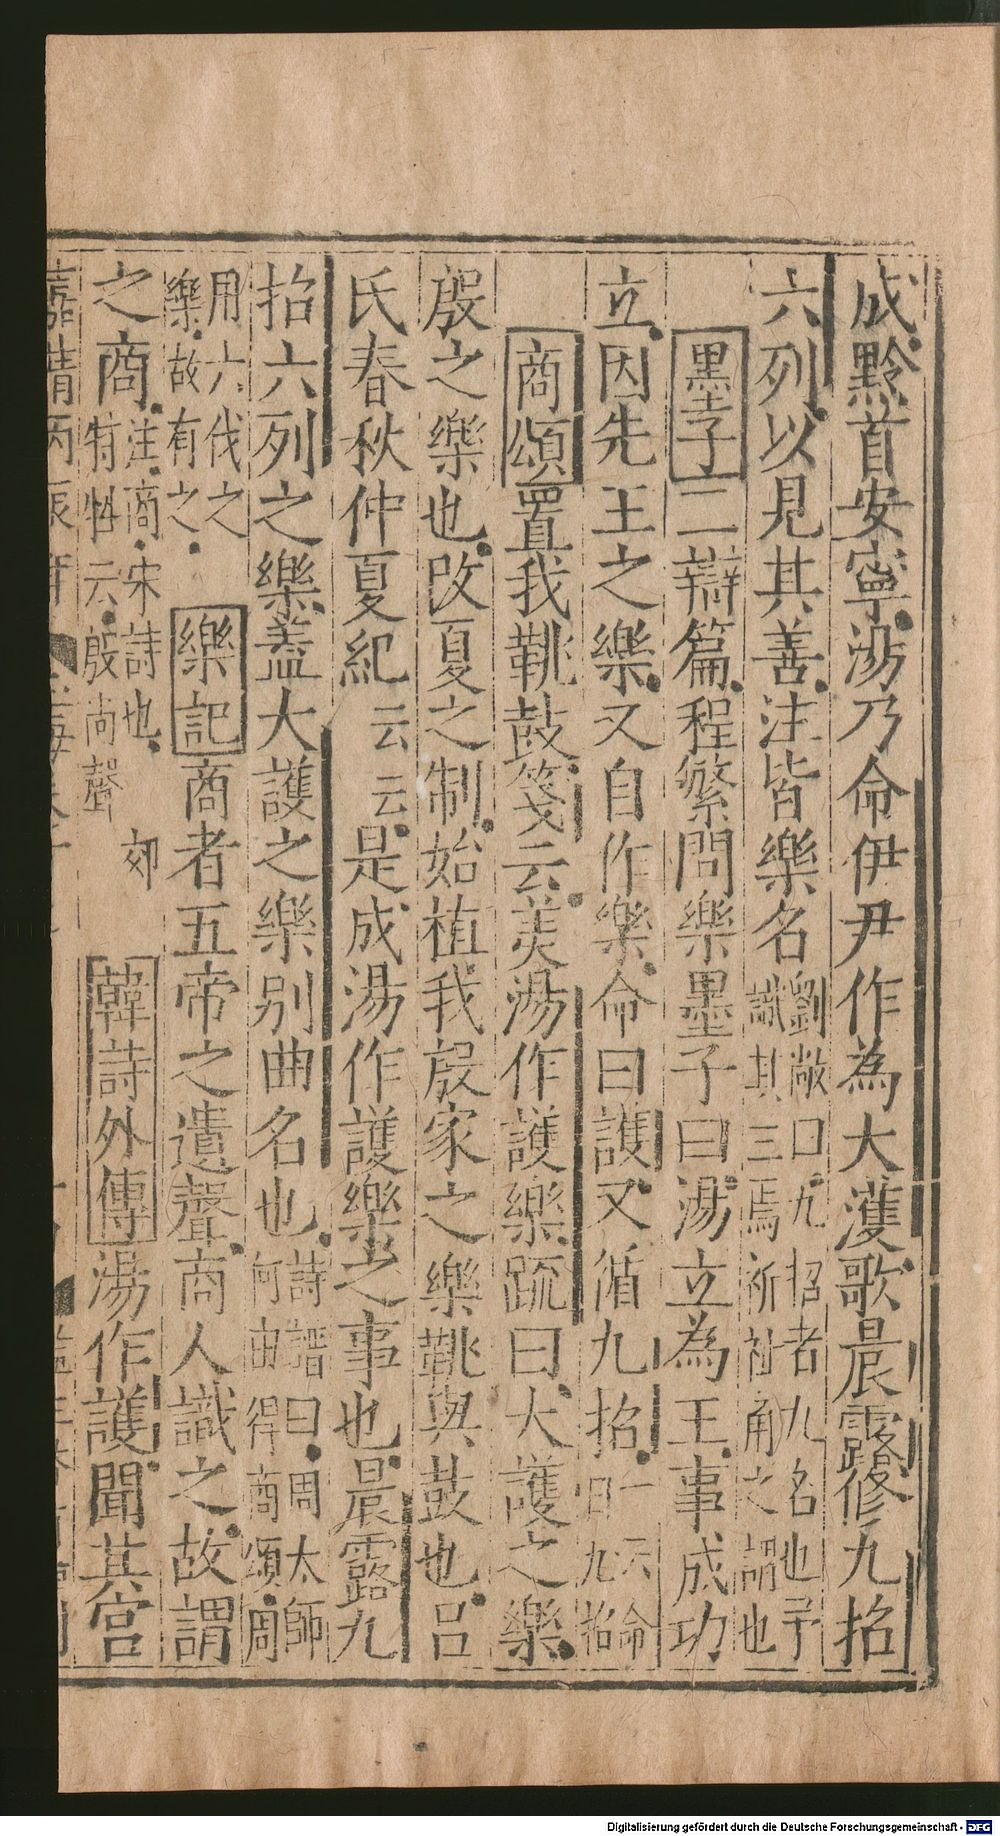 成黔首安寧湯乃命伊尹作為大濩歌晨露修九招
六列以見其善注皆樂名劉敞曰九招者九名也予
識其三焉祈祉角之謂也
墨子二辯篇程繁問樂墨子曰湯立為王事成功
立因先王之樂又自作樂命曰護又循九招一云命
曰九招
商頌置我鞉鼓箋云美湯作護樂疏曰大護之樂
殷之樂也改夏之制始植我殷家之樂鞉與鼓也呂
氏春秋仲夏紀云云是成湯作護樂之事也晨露九
招六列之樂蓋大護之樂別曲名也詩譜曰周太師
何由得商頌周
用六伐之
樂故有之
樂記商者五帝之遺聲商人識之故謂
之商注商宋詩也郊
特牲云殷尚聲
韓詩外傳湯作護聞其宮